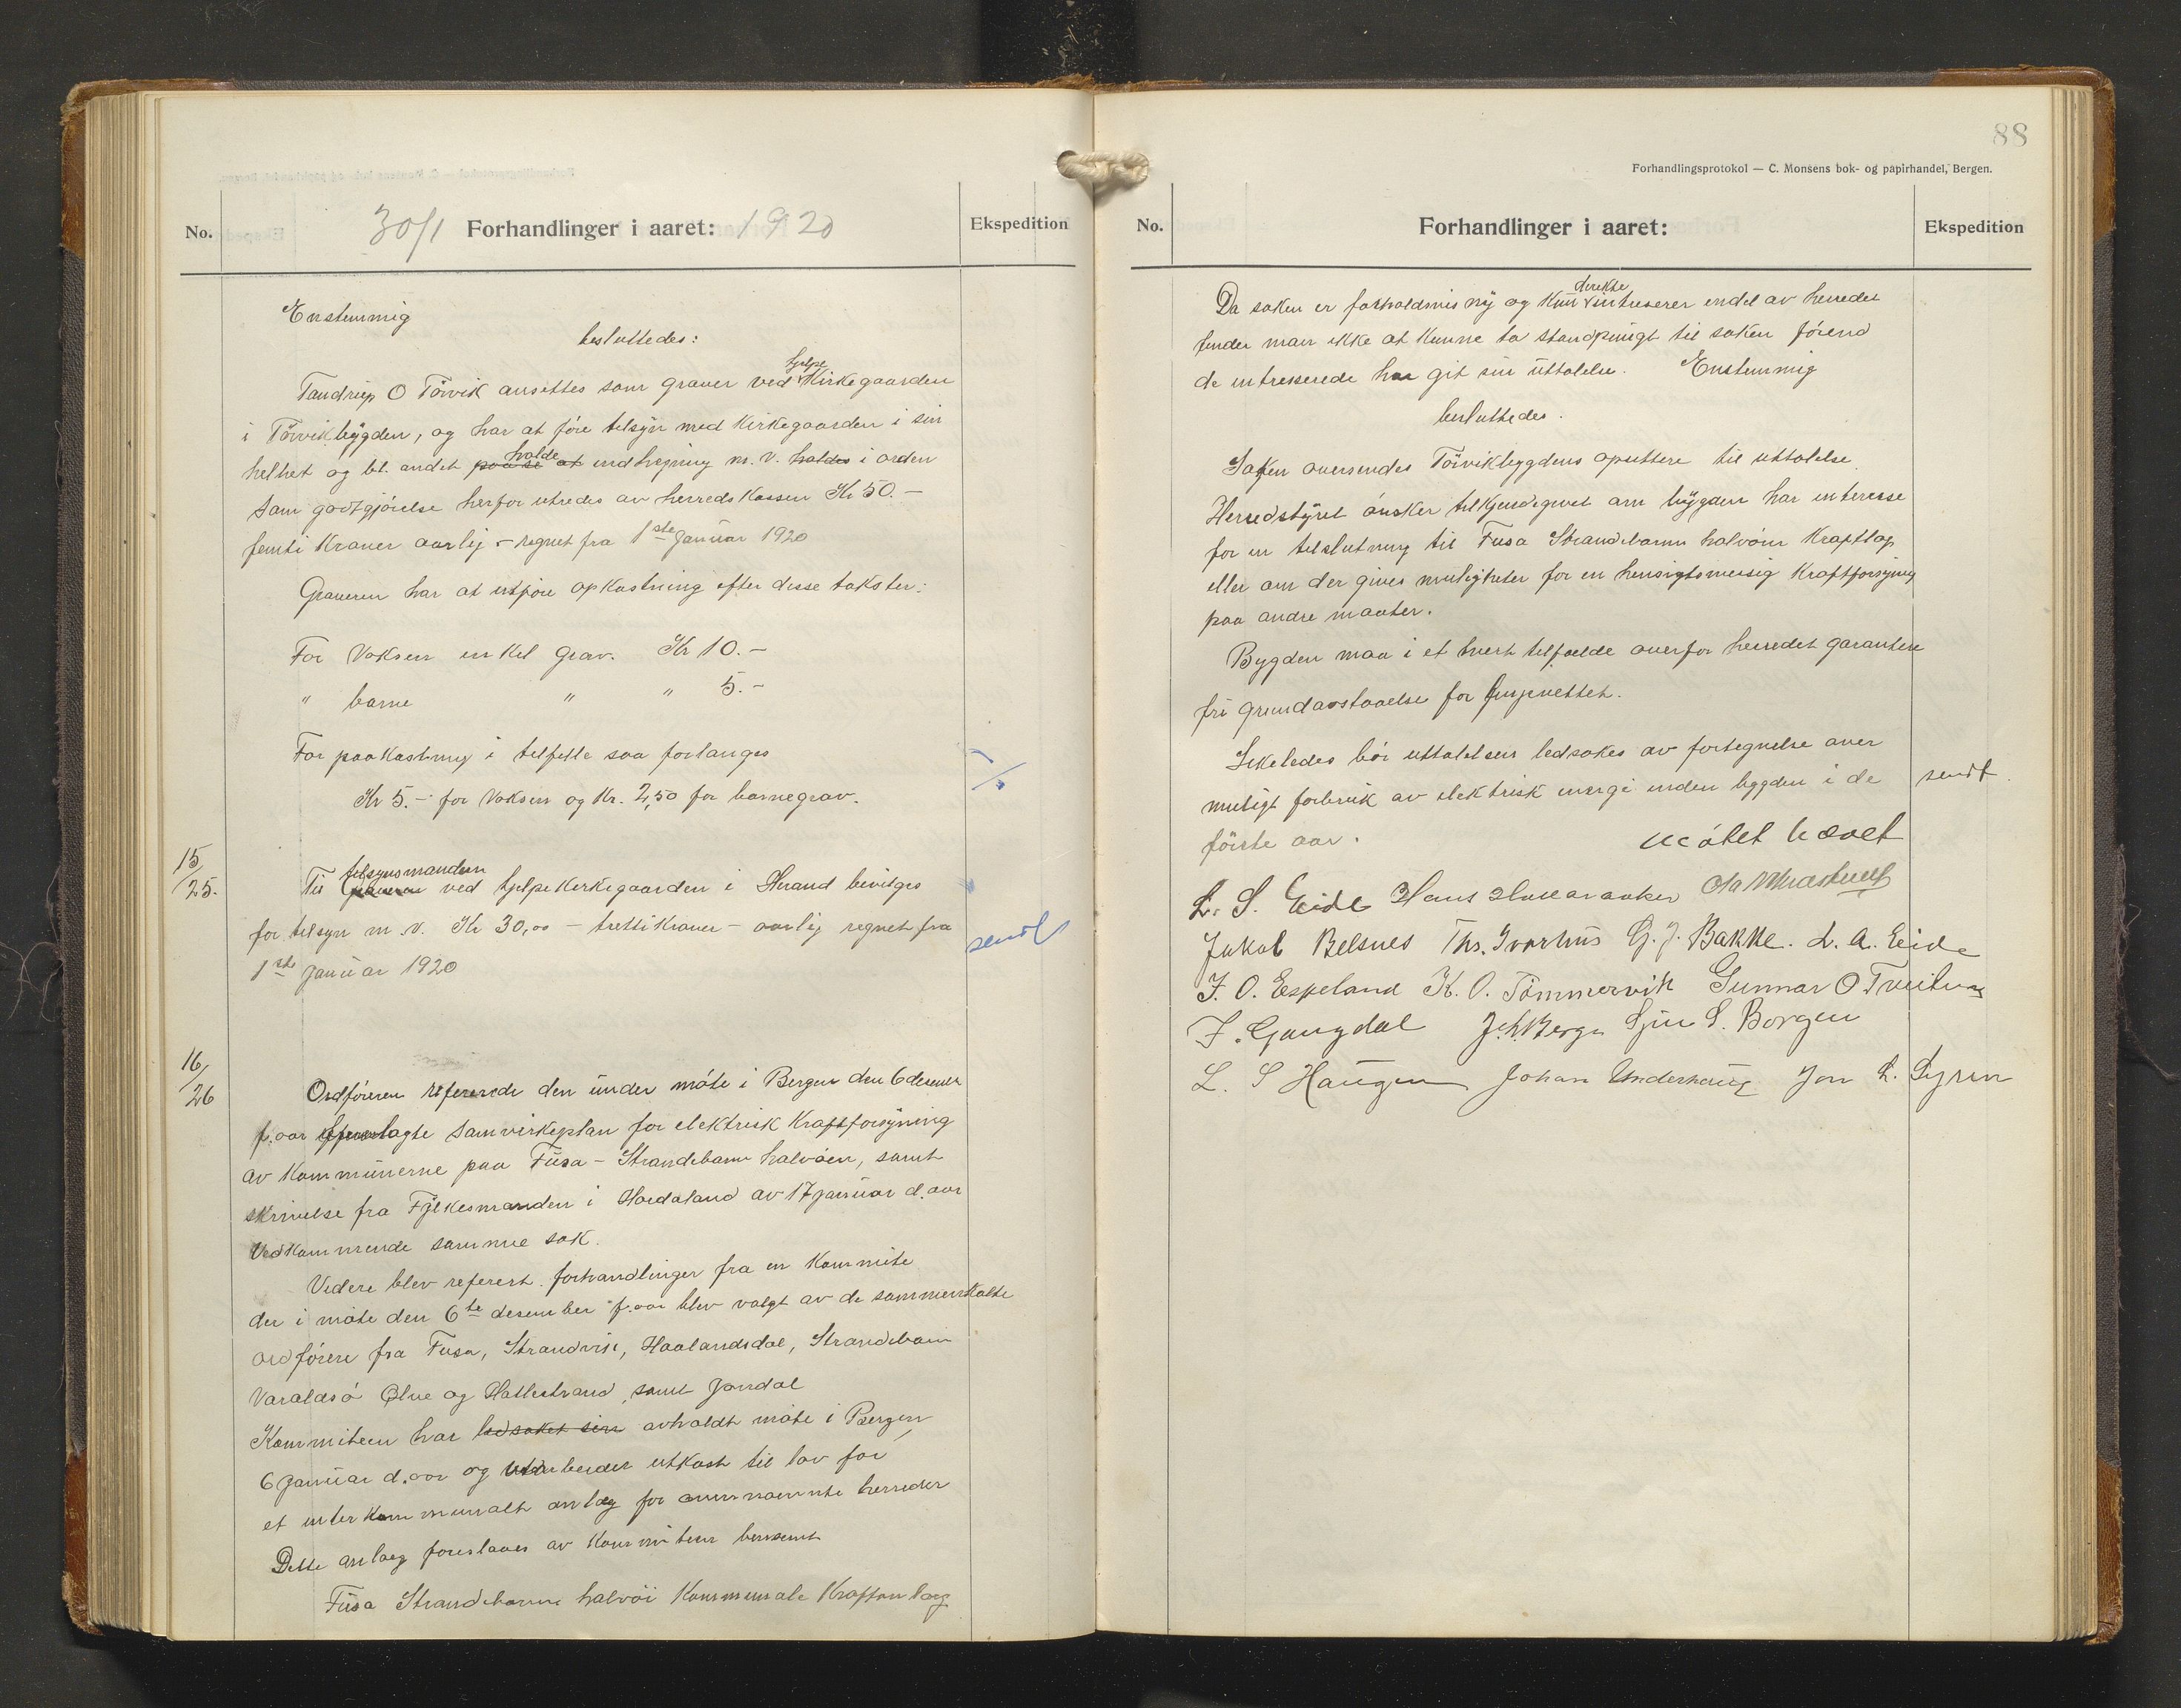 No.
30/1 Forhandlinger i aaret: 1920
Ekspedition
Enstemmig
besluttedes:
Tandrup O Törvik ansettes som graver ved hjelpe Kirkegaarden
i Törvikbygden, og har at före tilsyn med Kirkegaarden i sin
helhet og bl. andet paase at holde indhegning m.v. holdes i orden
Som godtgjörelse herfor utredes av herredskassen Kr 50.-
femti Kroner aarlig - regnet fra 1ste Januar 1920
Graveren har at utföre opkastning efter disse takster:
For Voksen enkel Grav. Kr 10.-
" barne " " 5.-
For paakastning i tilfelle saa forlanges
Kr 5.- for Voksen og Kr. 2,50 for barnegrav.
15/25.
Til Graveren tilsynsmanden ved hjelpekirkegaarden i Herand bevilges
for tilsyn m.v. Kr 30,00 - tretti Kroner - aarlig regnet fra
sendt
1ste Januar 1920
16/26
Ordföreren refererede den under möte i Bergen den 6 desember
f. aar fremlagte Samvirkeplan for elektrisk Kraftforsyning
av Kommunerne paa Fusa - Strandebarm halvöen, samt
skrivelse fra Fylkesmanden i Hordaland av 17 januar d. aar
Vedkommende samme sak.
Videre blev referert forhandlinger fra en Kommite
der i möte den 6te desember f. aar blev valgt av de sammenkalte
ordförere fra Fusa, Strandvik, Haalandsdal, Strandebarm
Varaldsö Ølve og Hatlestrand, samt Jondal
Kommiteen har ledsaket sin avholdt möte i Bergen
6 Januar d. aar og utarbeidet utkast til lov for
et interkommunalt anlæg for ovennævnte herreder
Dette anlæg foreslaaes av Kommiteen benævnt
Fusa Strandebarm halvöi Kommunale Kraftanlæg
88
Forhandlingsprotokol — C. Monsens bok- og papirhandel, Bergen.
No.
Forhandlinger i aaret:
Ekspedition
Da saken er forholdsvis ny og Kun direkte intreserer endel av herredet
finder man ikke at Kunne ta standpungt til saken förend
de intresserede har git sin uttalelse. Enstemmig
besluttedes.
Saken oversendes Törvikbygdens opsittere til uttalelse
Herredstyret önsker tilkjendegivet om bygden har interesse
for en tilslutning til Fusa Strandebarm halvöens Kraftlag
eller om der gives muligheter for en hensigtsmessig Kraftforsyning
paa andre maater.
Bygden maa i et hvert tilfælde overfor herredet garantere
fri grundavstaaelse for linjenettet.
Likeledes bör uttalelsen ledsakes av fortegnelse over
muligt forbruk av elektrisk energi inden bygden i de
sendt.
förste aar.
Mötet hævet
L. S. Eide Hans
Jakob Belsnes Ths. Ivarhus G. J. Bakke. L. A. Eide
J. O. Espeland K. O. Tömmervik Gunnar O
J. Gangdal J. Berge S. Borgen
L. S Haugen Johan Underhaug Jon L. Syren